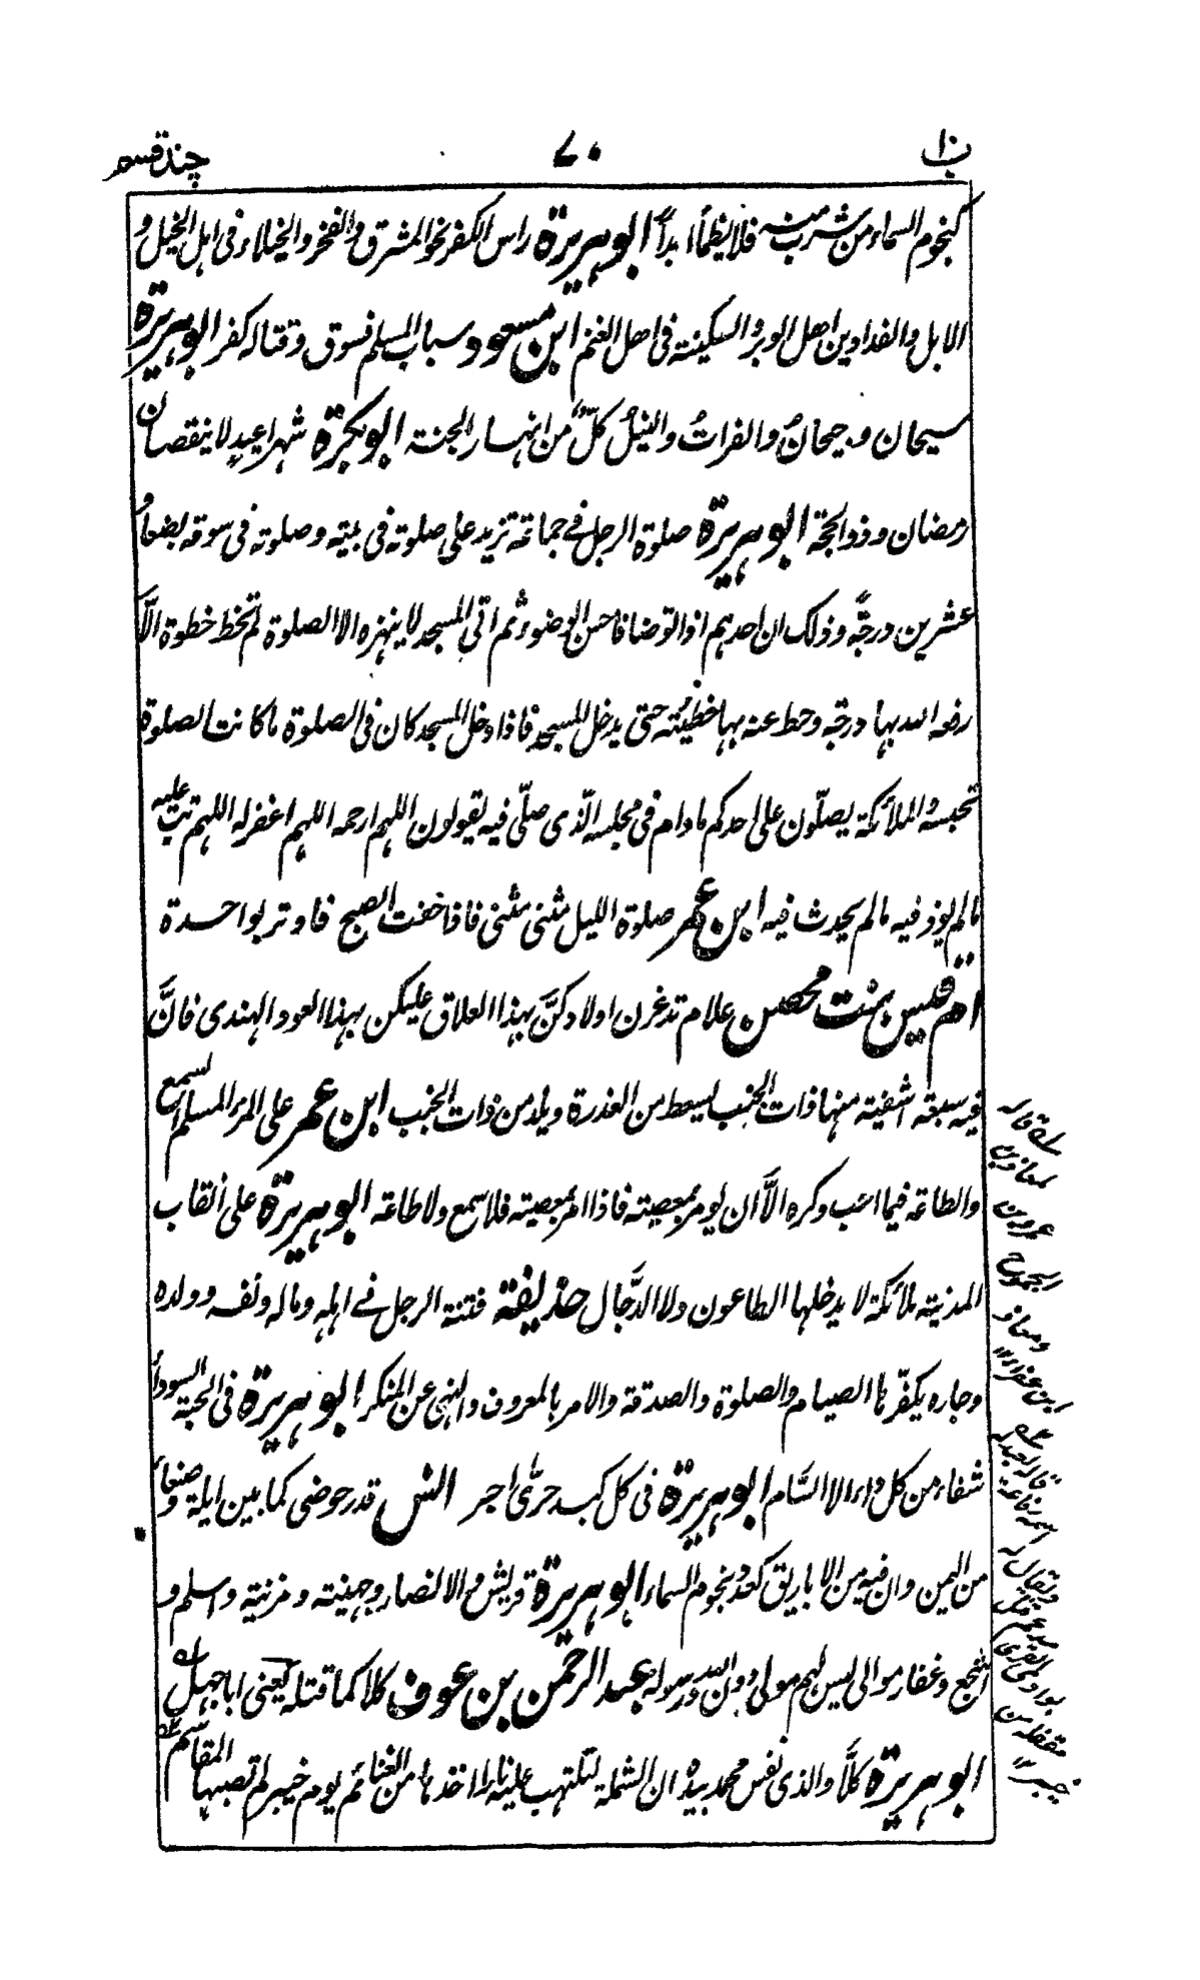 باب ۱۰
۷۰
چند قسم
كنجوم السماء من شرب منه فلا يظمأ ابداً ابو هريرة راس الكفر نحو المشرق والفخر والخيلاء فى اهل الخيل و
الابل والفدادين اهل الوبر والسكينة فى اهل الغنم ابن مسعود سباب المسلم فسوق وقتاله كفر ابو هريرة
سيحان وجيحانُ والفراتُ والنيلُ كلٌّ من انهار الجنة ابو بكرة شهرا عيدٍ لا ينقصان
رمضان وذو الحجة ابو هريرة صلوة الرجل فى جماعة تزيد على صلوته فى بيته وصلوته فى سوقه بضعاً و
عشرين درجةً وذلك ان احدهم اذا توضا فاحسن الوضوء ثم اتى المسجد لا ينهزه الا الصلوة لم يخط خطوة الّا
رفعه الله بها درجة وحط عنه بها خطيئة حتى يدخل المسجد فاذا دخل المسجد كان فى الصلوة ما كانت الصلوة
تحبسهُ والملائكة يصلّون على احدكم ما دام فى مجلسه الّذى صلّى فيه يقولون اللهم ارحمه اللهم اغفر له اللهم تب عليه
ما لم يوذ فيه ما لم يحدث فيه ابن عمر صلوة الليل مثنى مثنى فاذا خفت الصبح فاوتر بواحدة
ام قيس بنت محصن علام تدغرن اولادكنَّ بهذا العلاق عليكن بهذا العود الهندى فانَّ
فيه سبعة اشفية منها ذات الجنب يسعط من العذرة ويلد من ذات الجنب ابن عمر على المرء المسلم السمع
والطاعة فيما احب وكره الاَّ ان يومر بمعصيته فاذا امر بمعصيته فلا سمع ولا طاعة ابو هريرة على انقاب
المدينة ملائكة لا يدخلها الطاعون ولا الدَّجال حذيفة فتنة الرجل فى اهله وماله ونفسه وولده
وجاره يكفّرها الصيام والصلوة والصدقة والامر بالمعروف والنهى عن المنكر ابو هريرة فى الحبة السوداء
شفاء من كل داء الا السَّام ابو هريرة فى كل كبد حرّى اجر انس قدر حوضى كما بين ايلة وصنعاء
من اليمن وان فيه من الاباريق كعدد نجوم السماء ابو هريرة قريش والانصار وجهينة ومزينة واسلم و
اشجع وغفار موالى ليس لهم مولى دون الله ورسوله عبد الرحمن بن عوف كلاكما قتله يعنى ابا جهل
ابو هريرة كلَّا والذى نفس محمد بيده ان الشملة لتلتهب عليه نارا اخذها من الغنائم يوم خيبر لم تصبها المقاسم
قاله
لمعاذ بن
عمرو بن
الجموح
ومعاذ
ابن عفراء ۱۲
قاله لعبد له
اسمه رفاعة
ويقال له
مدعم
بوادى القرى
مقفله من
خيبر ۱۲